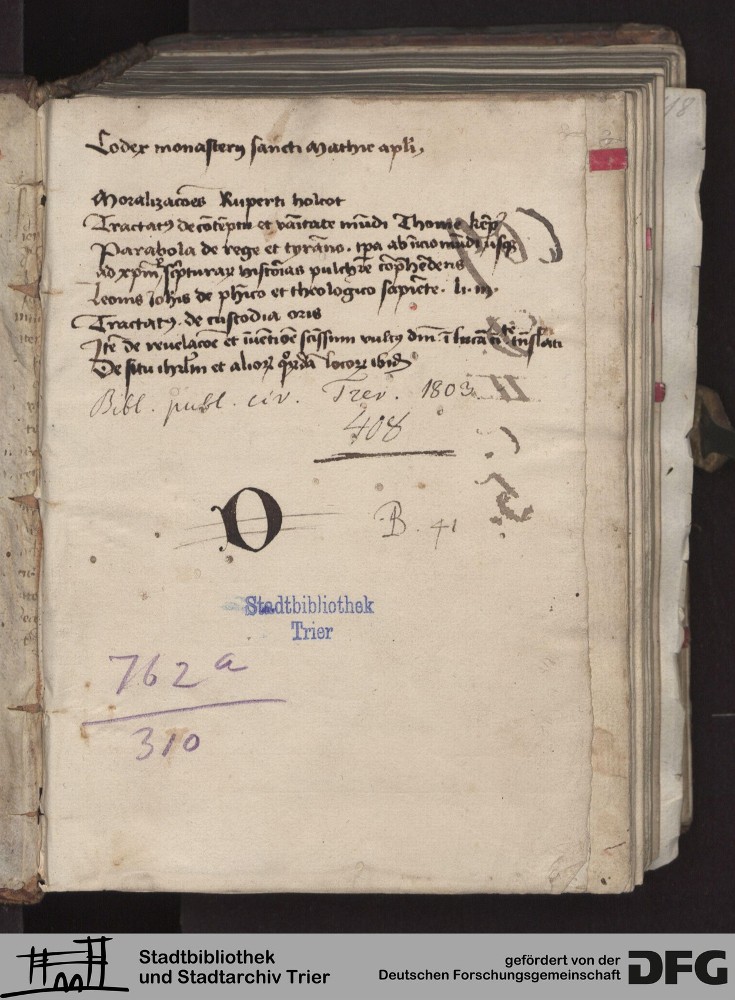 Codex monasterij sancti Mathie apli
Moralizacoes Ruperti holcot
Tractatus de cōtēptu et vanitate mūdi Thome kēp
Parabola de rege et tyrāno. tpa ab inicio mūdi usqz
ad xpm scripturaꝝ historias pulchre cōphēdens
Leonis Iohis de phico et theologico sapiēte. li. iii.
Tractatus. de custodia oris
Itē de reuelacoe et iuētioe scissimi vultus dni ī lucanā trāslati
De situ ihrlm et alioꝝ locoꝝ ibidē
Bibl. publ. civ. Trev. 1803
408
O
B. 41
Stadtbibliothek
Trier
762 a
310
Stadtbibliothek
und Stadtarchiv Trier
gefördert von der
Deutschen Forschungsgemeinschaft
DFG